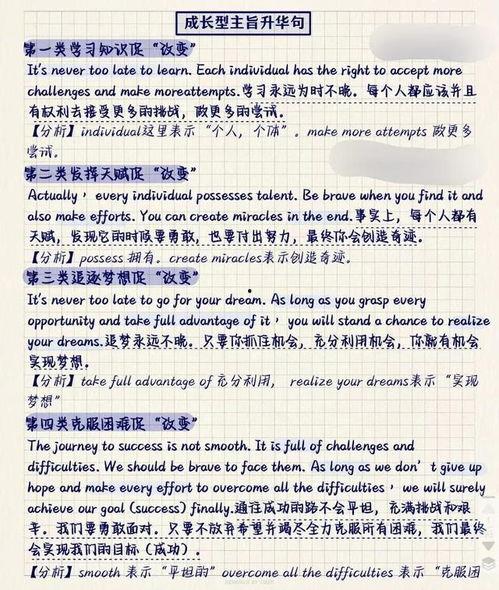 成长型主旨升华句
第一类学习知识促“改变”
It's never too late to learn. Each individual has the right to accept more
challenges and make moreattempts.学习永远为时不晚。每个人都应该并且
有权利去接受更多的挑战，做更多的尝试。
【分析】individual这里表示“个人，个体”。make more attempts 做更多
尝试。
第二类发挥天赋促“改变”
Actually， every individual possesses talent. Be brave when you find it and
also make efforts. You can create miracles in the end.事实上，每个人都有
天赋，发现它的时候要勇敢，也要付出努力，最终你会创造奇迹。
【分析】possess 拥有。create miracles表示创造奇迹。
第三类追逐梦想促“改变”
It's never too late to go for your dream. As long as you grasp every
opportunity and take full advantage of it， you will stand a chance to realize
your dreams.追梦永远不晚。只要你抓住机会，充分利用机会，你就有机会
实现梦想。
【分析】take full advantage of 充分利用， realize your dreams表示“实现
梦想”
第四类克服困难促“改变”
The journey to success is not smooth. It is full of challenges and
difficulties. We should be brave to face them. As long as we don’t give up
hope and make every effort to overcome all the difficulties， we will surely
achieve our goal (success) finally.通往成功的路不会平坦，充满挑战和艰
辛。我们要勇敢面对。只要不放弃希望并竭尽全力克服所有困难，我们最终
会实现我们的目标（成功）。
【分析】smooth 表示“平坦的”overcome all the difficulties 表示“克服困